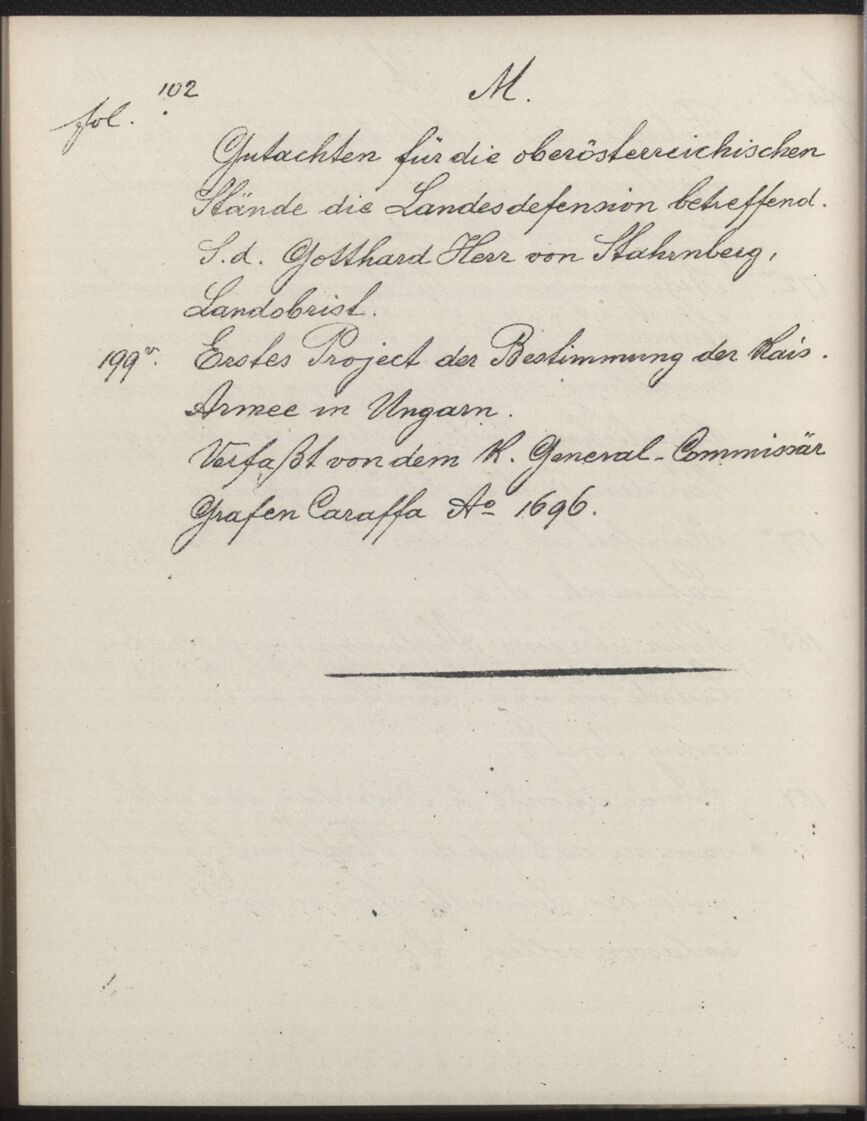 102
M.
fol.
Gutachten für die oberösterreichischen
Stände die Landesdefension betreffend.
S.d. Gotthard Herr von Stahrnberg,
Landobrist.
199v. Erstes Project der Bestimmung der Kais.
Armee in Ungarn.
Verfaßt von dem K. General-Commissär
Grafen Caraffa Ao 1696.